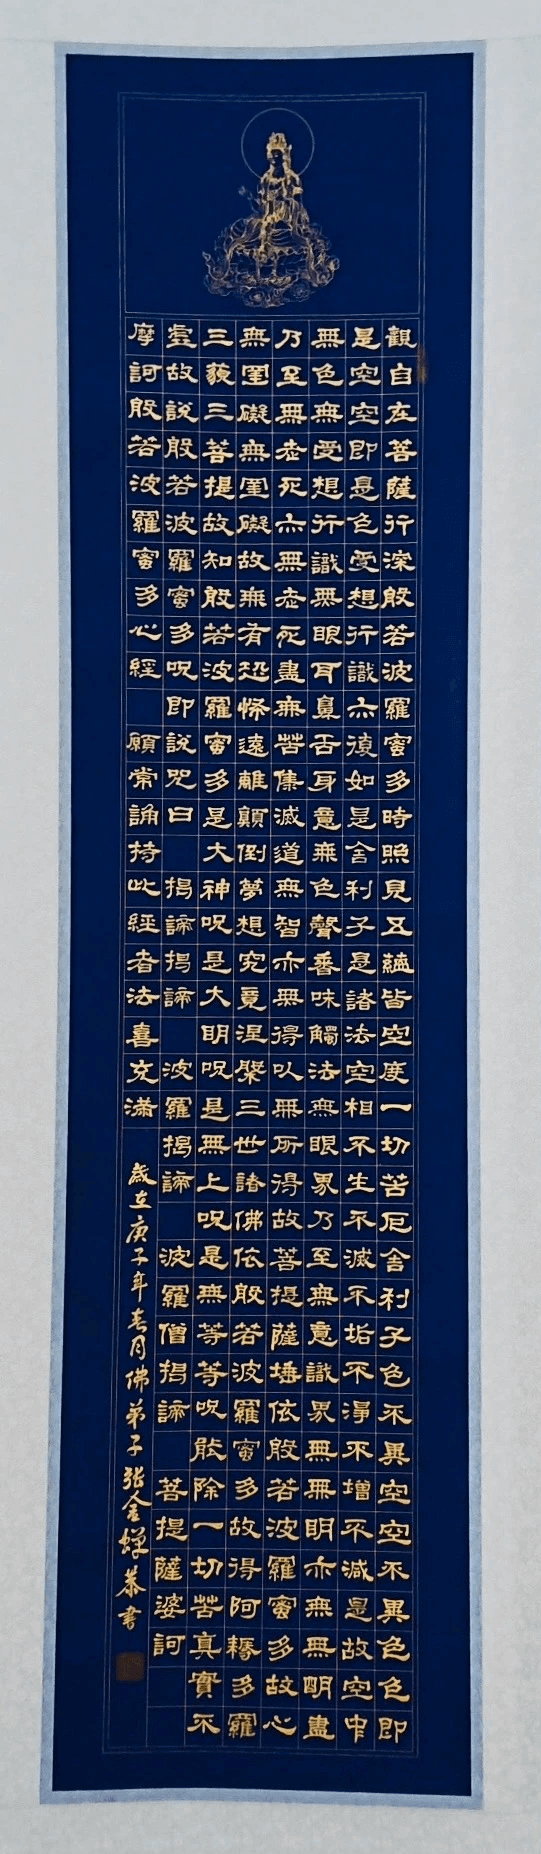 觀自在菩薩行深般若波羅蜜多時照見五蘊皆空度一切苦厄舍利子色不異空空不異色色即
是空空即是色受想行識亦復如是舍利子是諸法空相不生不滅不垢不淨不增不減是故空中
無色無受想行識無眼耳鼻舌身意無色聲香味觸法無眼界乃至無意識界無無明亦無無明盡
乃至無老死亦無老死盡無苦集滅道無智亦無得以無所得故菩提薩埵依般若波羅蜜多故心
無罣礙無罣礙故無有恐怖遠離顛倒夢想究竟涅槃三世諸佛依般若波羅蜜多故得阿耨多羅
三藐三菩提故知般若波羅蜜多是大神呪是大明呪是無上呪是無等等呪能除一切苦真實不
虛故說般若波羅蜜多呪即說咒曰 揭諦揭諦 波羅揭諦 波羅僧揭諦 菩提薩婆訶
摩訶般若波羅蜜多心經 願常誦持此經者法喜充滿 歲在庚子年春月佛弟子張金蟬恭書